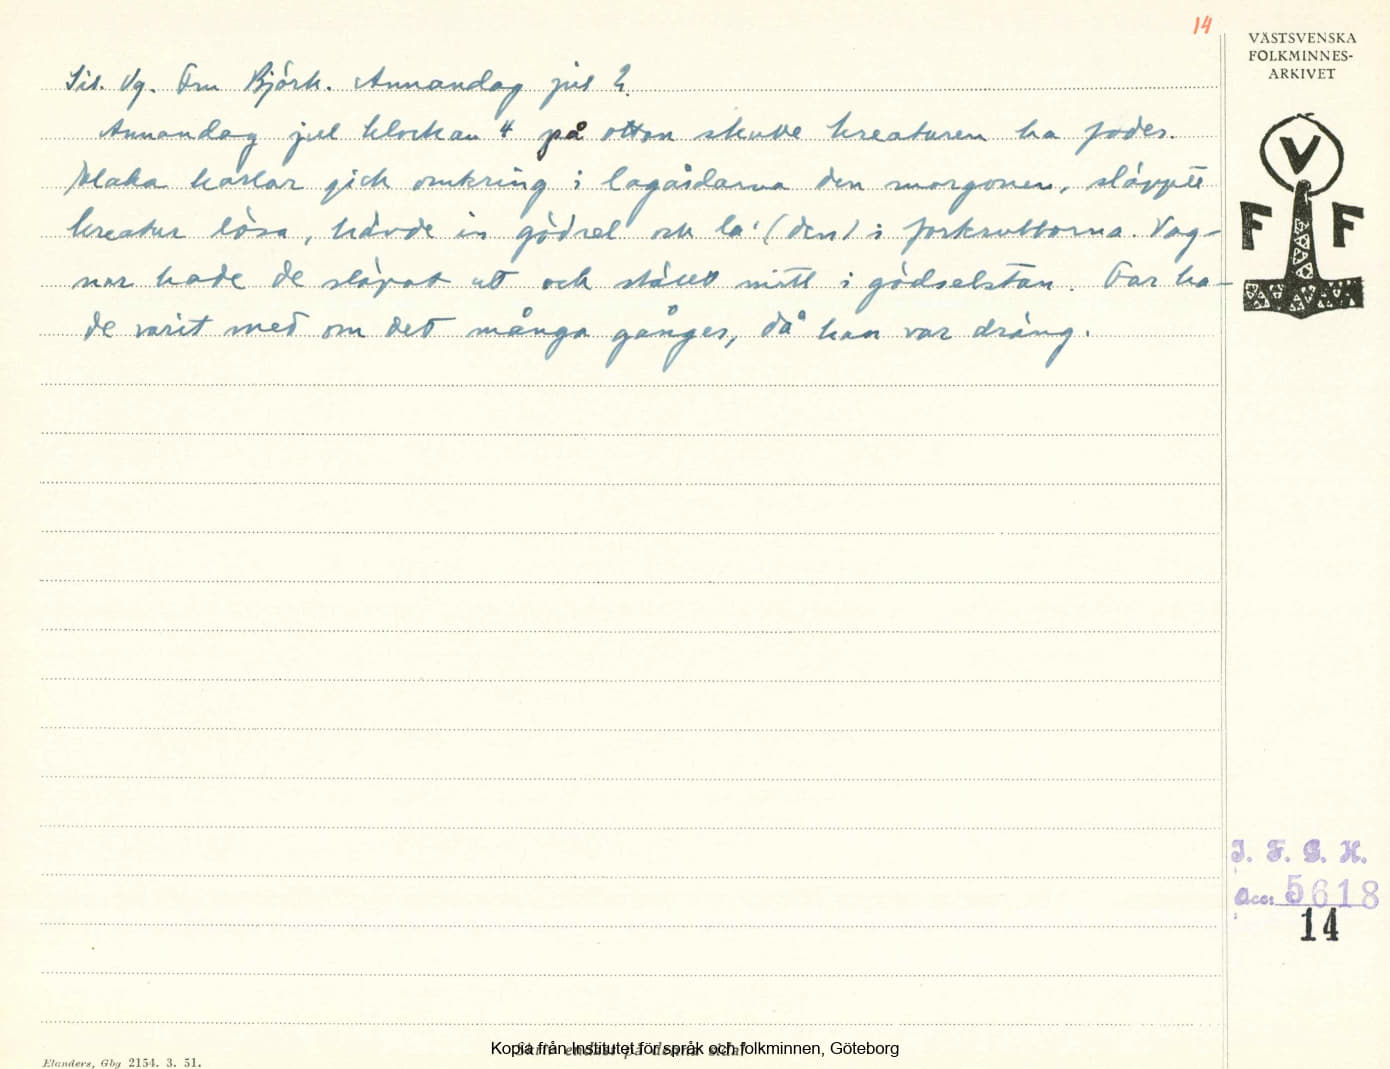 14
VÄSTSVENSKA
FOLKMINNES-
ARKIVET
V
F F
Sil. Vg. Fru Björk. Annandag jul 2.
Annandag jul klockan 4 på ottan skulle kreaturen ha foder.
Elaka karlar gick omkring i lagårdarna den morgonen, släppte
kreatur lösa, hävde in gödsel och la' (den) i foderkrubborna. Vag-
nar hade de släpat ut och ställt mitt i gödselstan. Far ha-
de varit med om det många gånger, då han var dräng.
I. F. G. H.
Acc: 5618
14
Skriv endast på denna sida!
Kopia från Institutet för språk och folkminnen, Göteborg
Elanders, Gbg 2154. 3. 51.